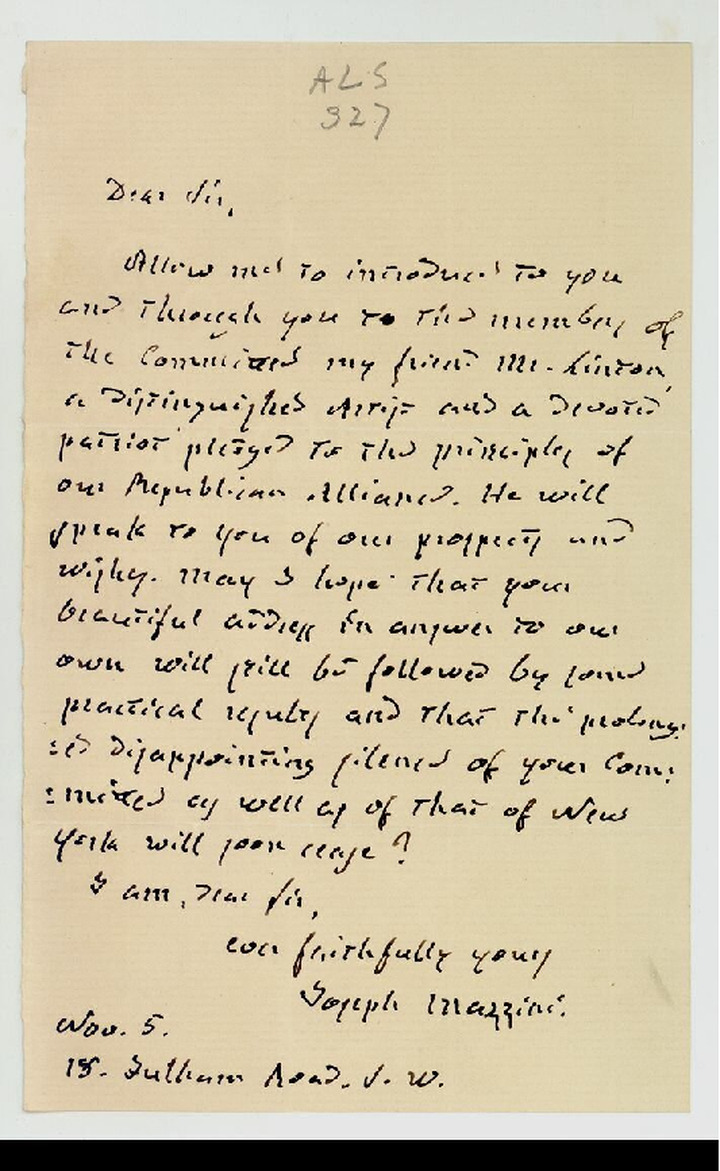 ALS
327
Dear Sir,
Allow me to introduce to you
and through you to the members of
the Committee my friend Mr. Linton,
a distinguished Artist and a devoted
patriot pledged to the principles of
our Republican Alliance. He will
speak to you of our prospects and
wishes. May I hope that your
beautiful address in answer to our
own will still be followed by some
practical results and that the prolong:
:ed disappointing silence of your Com:
:mittee as well as of that of New
York will soon cease?
I am, dear Sir,
ever faithfully yours
Joseph Mazzini.
Nov. 5.
18. Fulham Road. S. W.